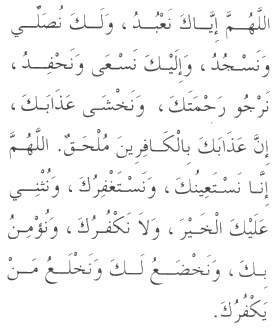 اللَّهُمَّ إِيَّاكَ نَعْبُدُ، وَلَكَ نُصَلِّي
وَنَسْجُدُ، وَإِلَيْكَ نَسْعَى وَنَحْفِدُ،
نَرْجُو رَحْمَتَكَ، وَنَخْشَى عَذَابَكَ،
إِنَّ عَذَابَكَ بِالْكَافِرِينَ مُلْحَقٌ. اللَّهُمَّ
إِنَّا نَسْتَعِينُكَ، وَنَسْتَغْفِرُكَ، وَنُثْنِي
عَلَيْكَ الْخَيْرَ، وَلَا نَكْفُرُكَ، وَنُؤْمِنُ
بِكَ، وَنَخْضَعُ لَكَ وَنَخْلَعُ مَنْ
يَكْفُرُكَ.